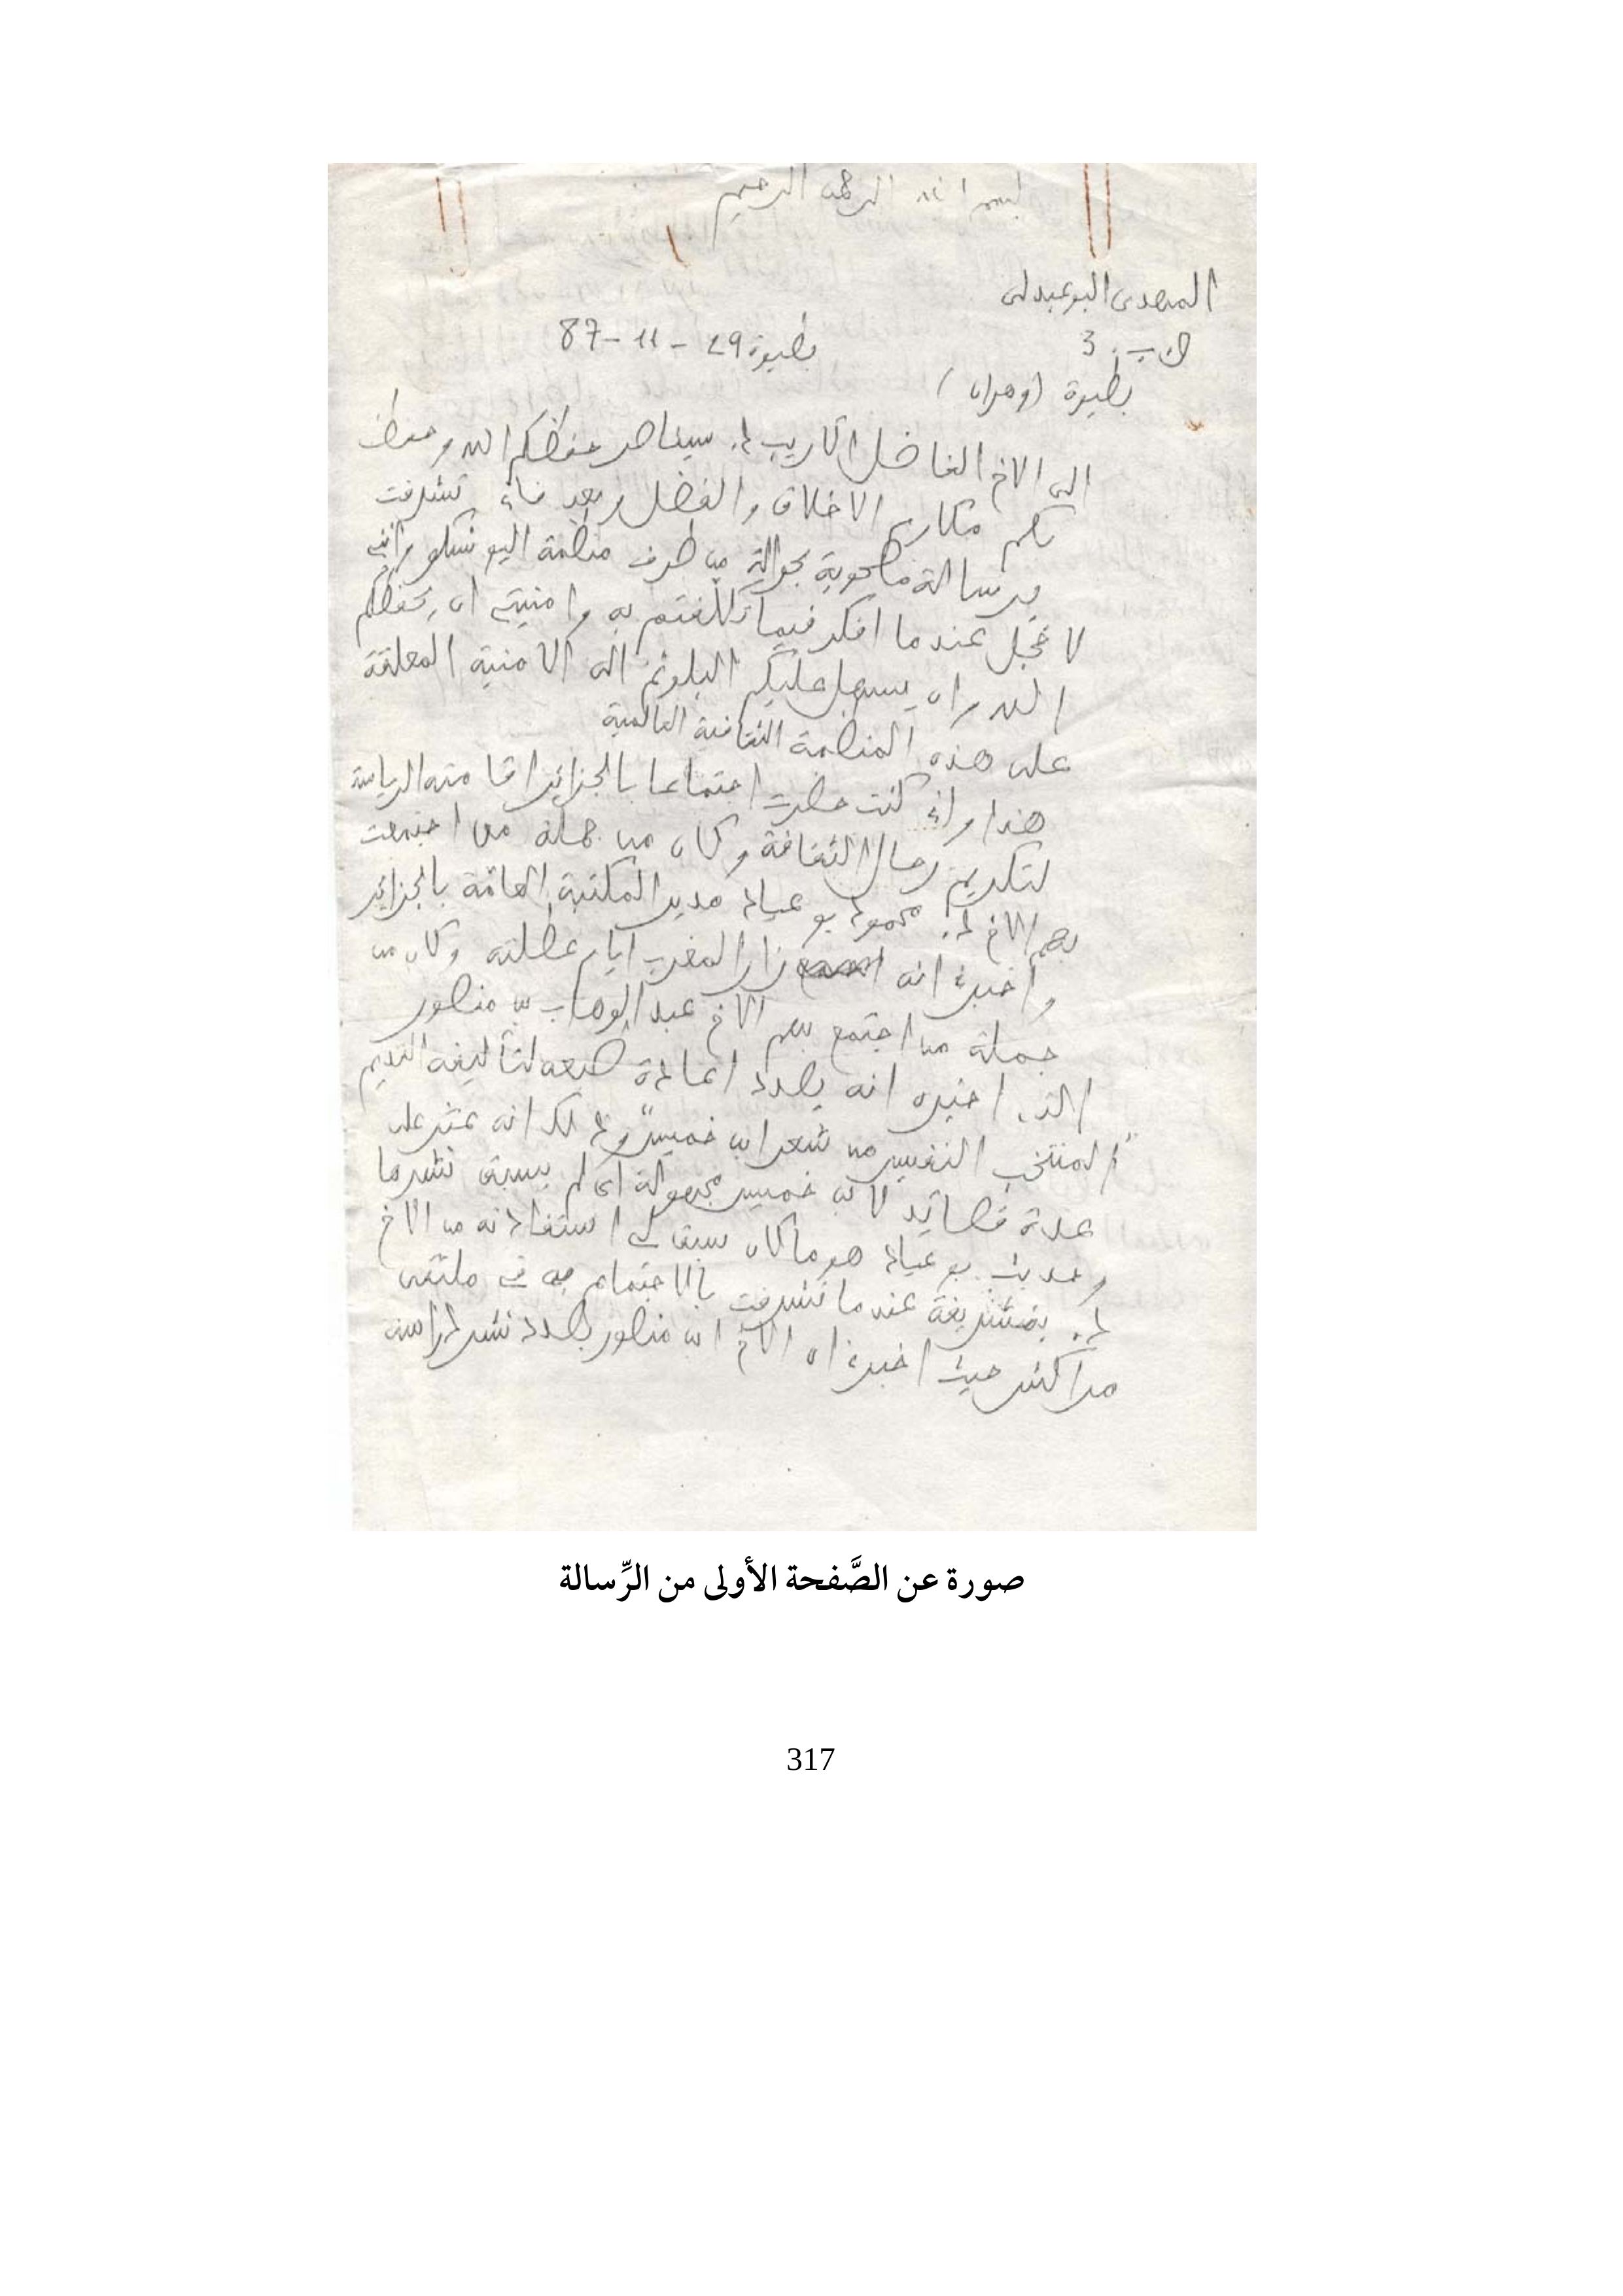 بسم الله الرحمن الرحيم
المهدي البوعبدلي
ص.ب. 3
بطيوة 29 - 11 - 87
بطيوة (وهران)
الى الاخ الفاضل الاريب د. سيناصر حفظكم الله وحفظ
لكم مكارم الاخلاق والفضل وبعد فانى تشرفت
برسالة مصحوبة بحوالة من طرف منظمة اليونسكو وانى
لا خجل عندما افكر فيما تكلفتم به وامنيتى ان يحفظكم
الله وان يسهل عليكم البلوغ الى الامنية المعلقة
على هذه المنظمة الثقافية العالمية
هذا وانى كنت حضرت اجتماعا بالجزائر اقامته الرياسة
لتكريم رجال الثقافة وكان من جملة من اجتمعت
بهم الاخ د. محمود بوعياد مدير المكتبة العامة بالجزائر
واخبرنى انه زار المغرب ايام عطلته وكان من
جملة من اجتمع بهم الاخ عبد الوهاب بن منصور
الذى اخبره انه بصدد اعادة طبعه لتأليفه القديم
"المنتخب النفيس من شعر ابن خميس" وذلك انه عثر على
عدة قصائد لابن خميس مجهولة اى لم يسبق نشرها
وحديث بوعياد هو ما كان سبق لى استفادته من الاخ
د. بنشريفة عندما تشرفت بالاجتماع به فى ملتقى
مراكش حيث اخبرنى ان الاخ ابن منصور بصدد نشر دراسة
صورة عن الصَّفحة الأولى من الرِّسالة
317